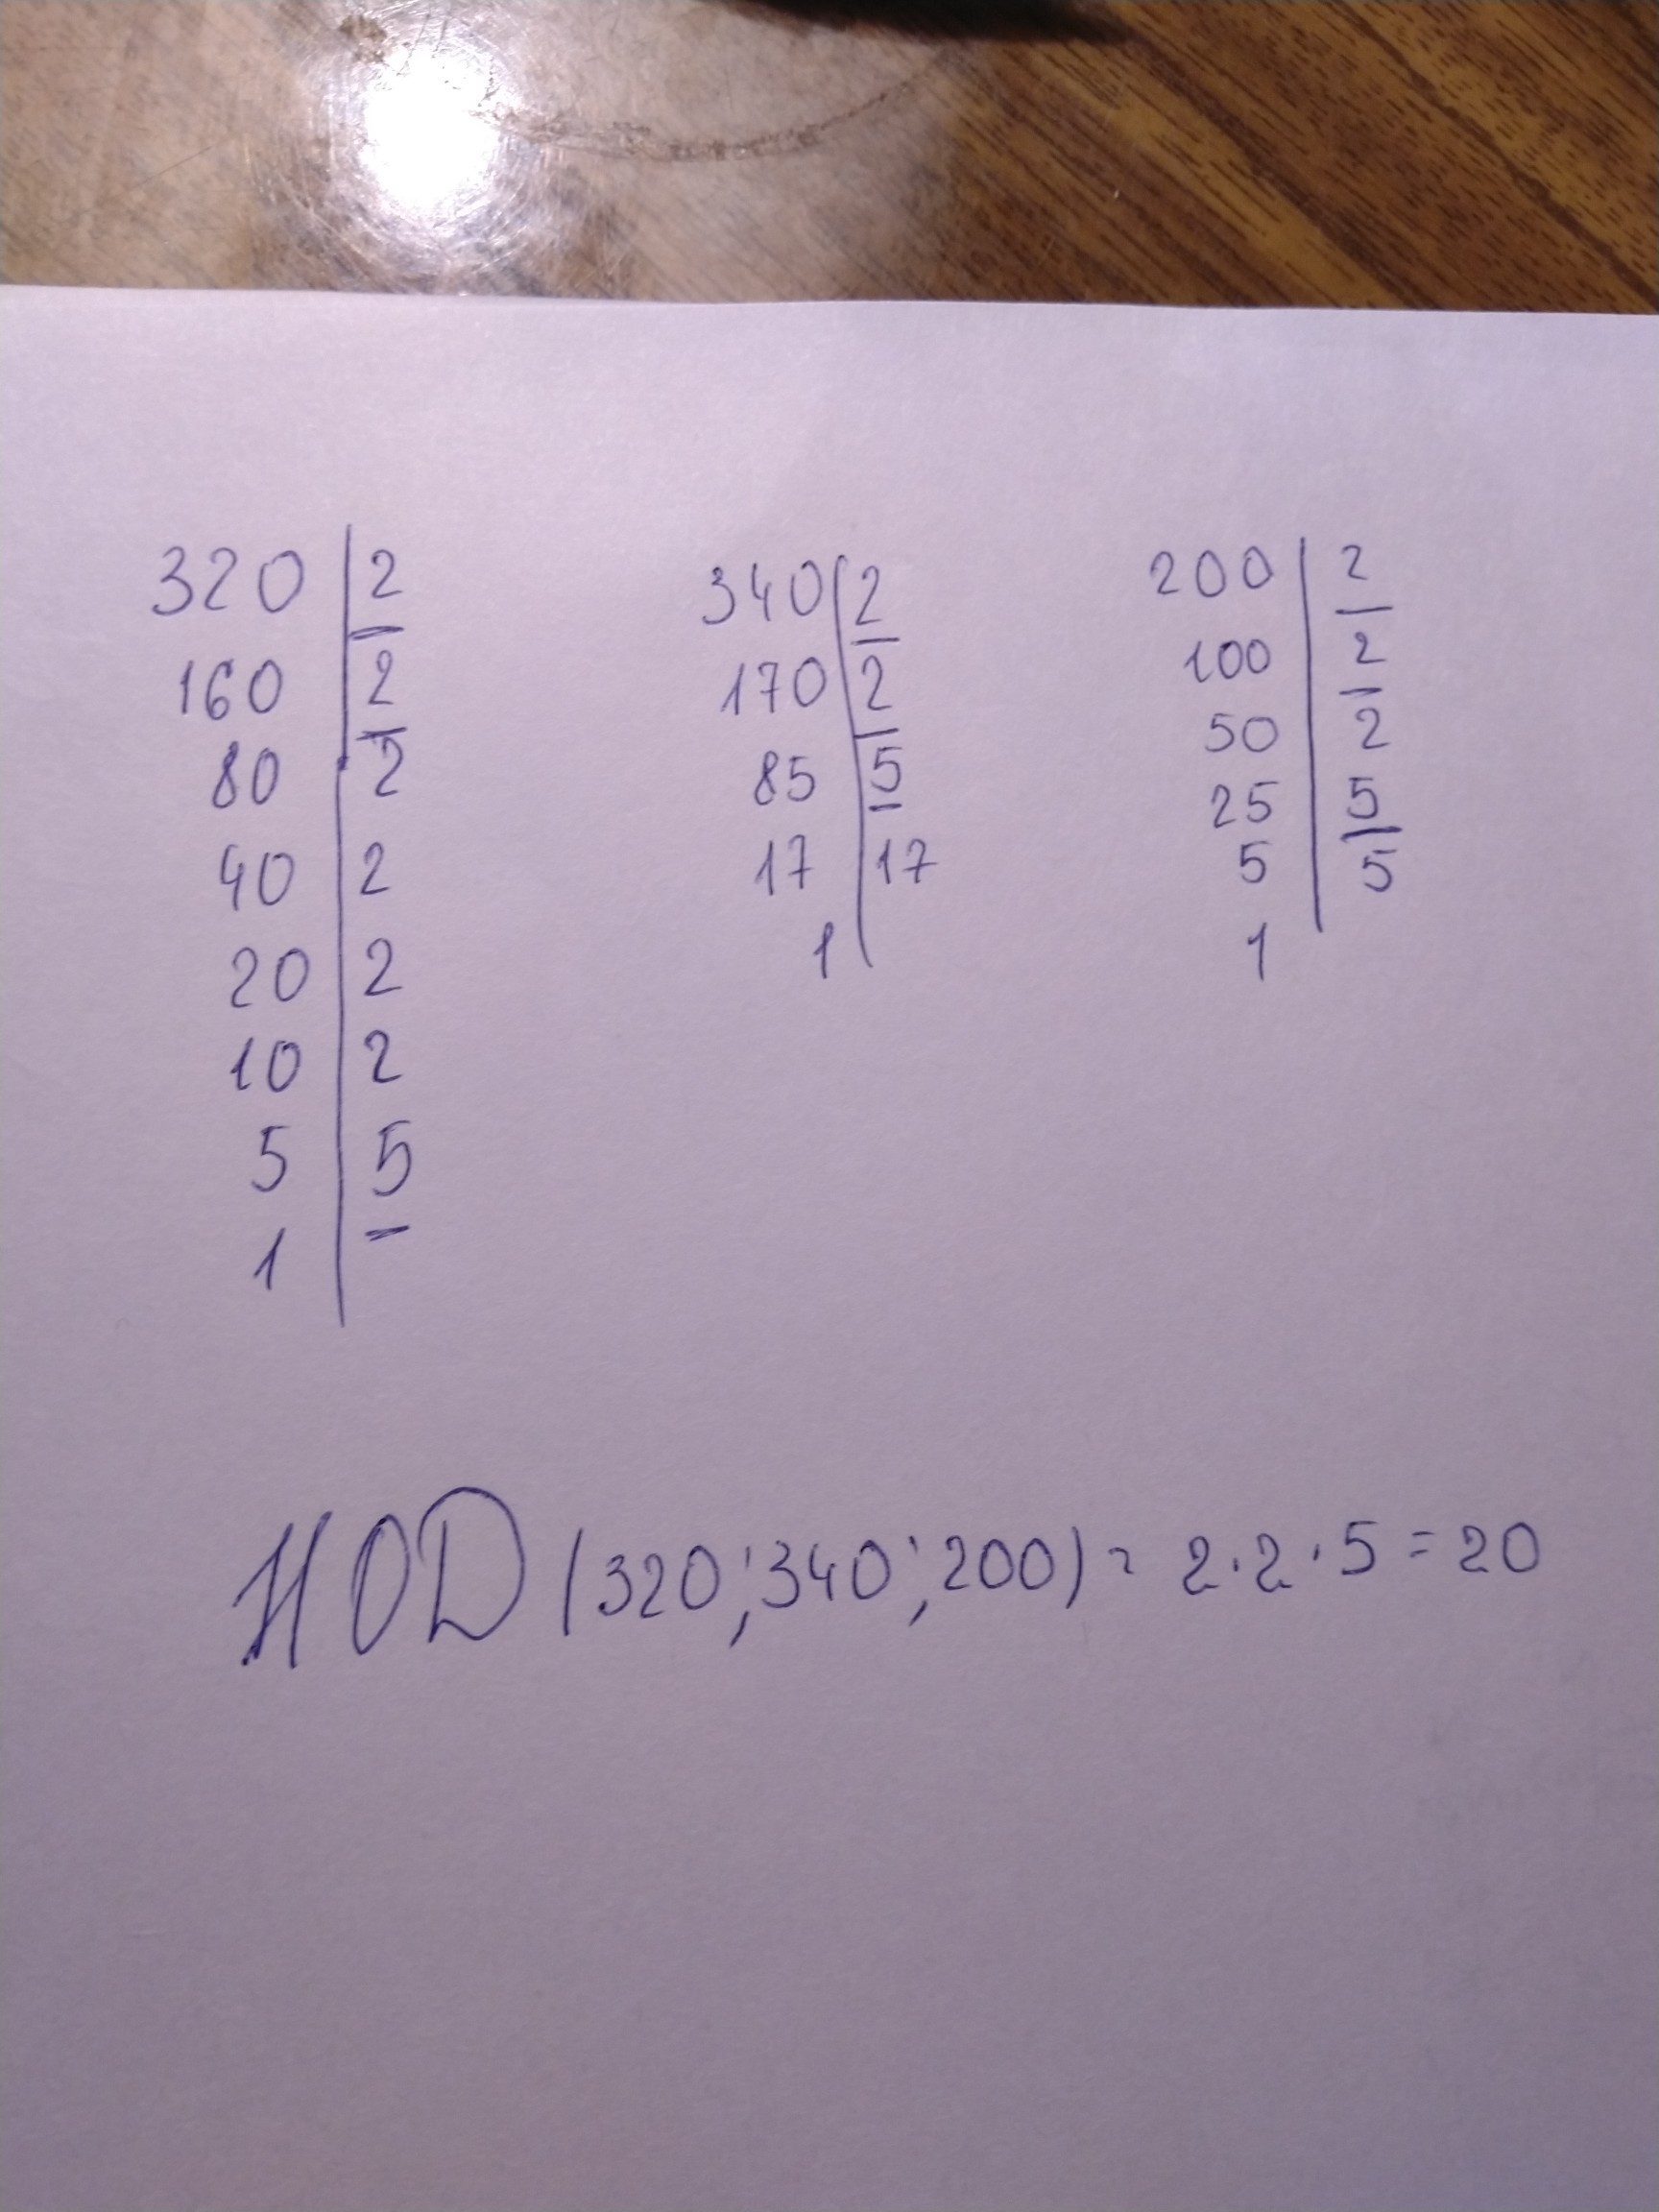 320 | 2
160 | 2
80 | 2
40 | 2
20 | 2
10 | 2
5 | 5
1 |
340 | 2
170 | 2
85 | 5
17 | 17
1 |
200 | 2
100 | 2
50 | 2
25 | 5
5 | 5
1
НОD (320; 340; 200) = 2·2·5 = 20